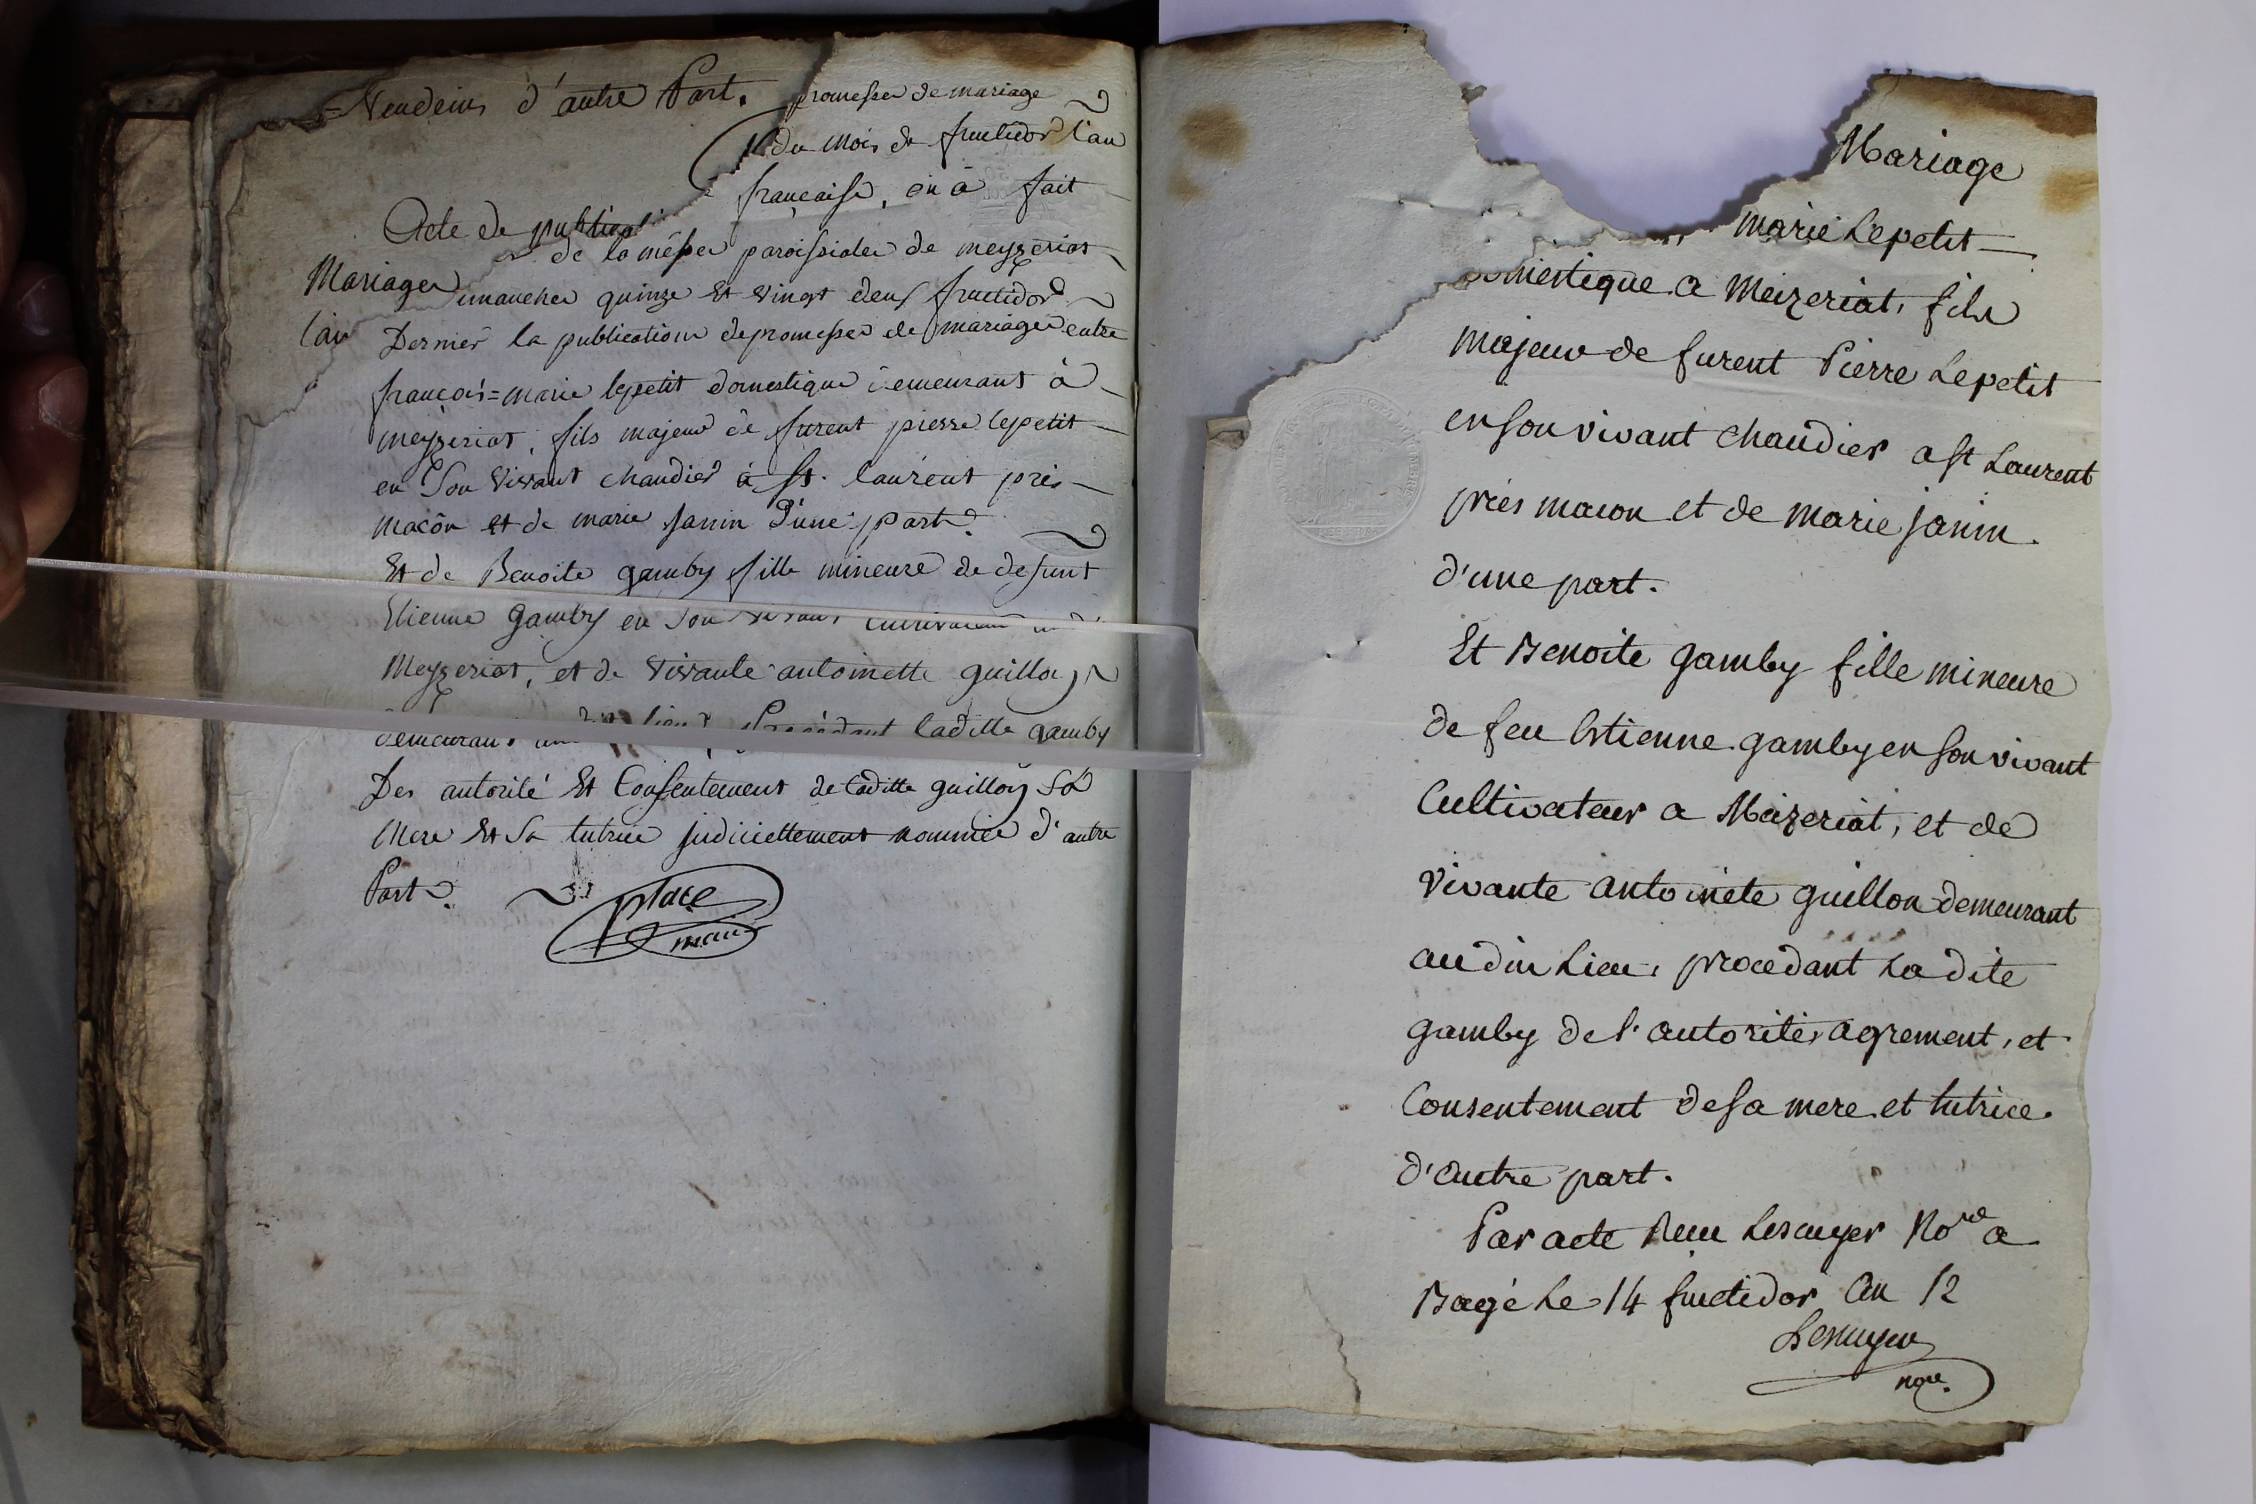 = Vendeins d'autre Part.
promesse de mariage
du mois de fructidor l'an
française, on à fait
Acte de publicat
de la messe paroissiale de meyzeriat
Mariage
imanche quinze Et vingt deux fructidor
l'an
Dernier la publication de promesse de mariage entre
françois=marie lepetit domestique demeurant à
meyzeriat, fils majeur de furent pierre lepetit
en Son vivant chaudier à St. laurent près
macôn et de marie janin D'une part.
Et de Benoite gamby fille mineure de defunt
Etienne gamby en Son vivant cultivateur
Meyzeriat, et de vivante antoinette guillon
demeurant lieu, Procédant laditte gamby
Des autorité Et Consentement de laditte guillon Sa
Mere Et Sa tutrice judiciellement nommée d'autre
Part.
place
maire
Mariage
marie Lepetit
omestique a Meizeriat, fils
majeur de furent Pierre Lepetit
en son vivant chaudier a st Laurent
près macon et de marie janin.
d'une part.
Et Benoite gamby fille mineure
de feu Estienne gamby en son vivant
Cultivateur a Meizeriat, et de
vivante antoinete guillon demeurant
audin Lieu, procedant La dite
gamby de l'autorité, agrement, et
Consentement de sa mere et tutrice.
d'autre part.
Par acte Reçu Lescuyer Nore a
Bagé Le 14 fructidor an 12
Lescuyer
nore.